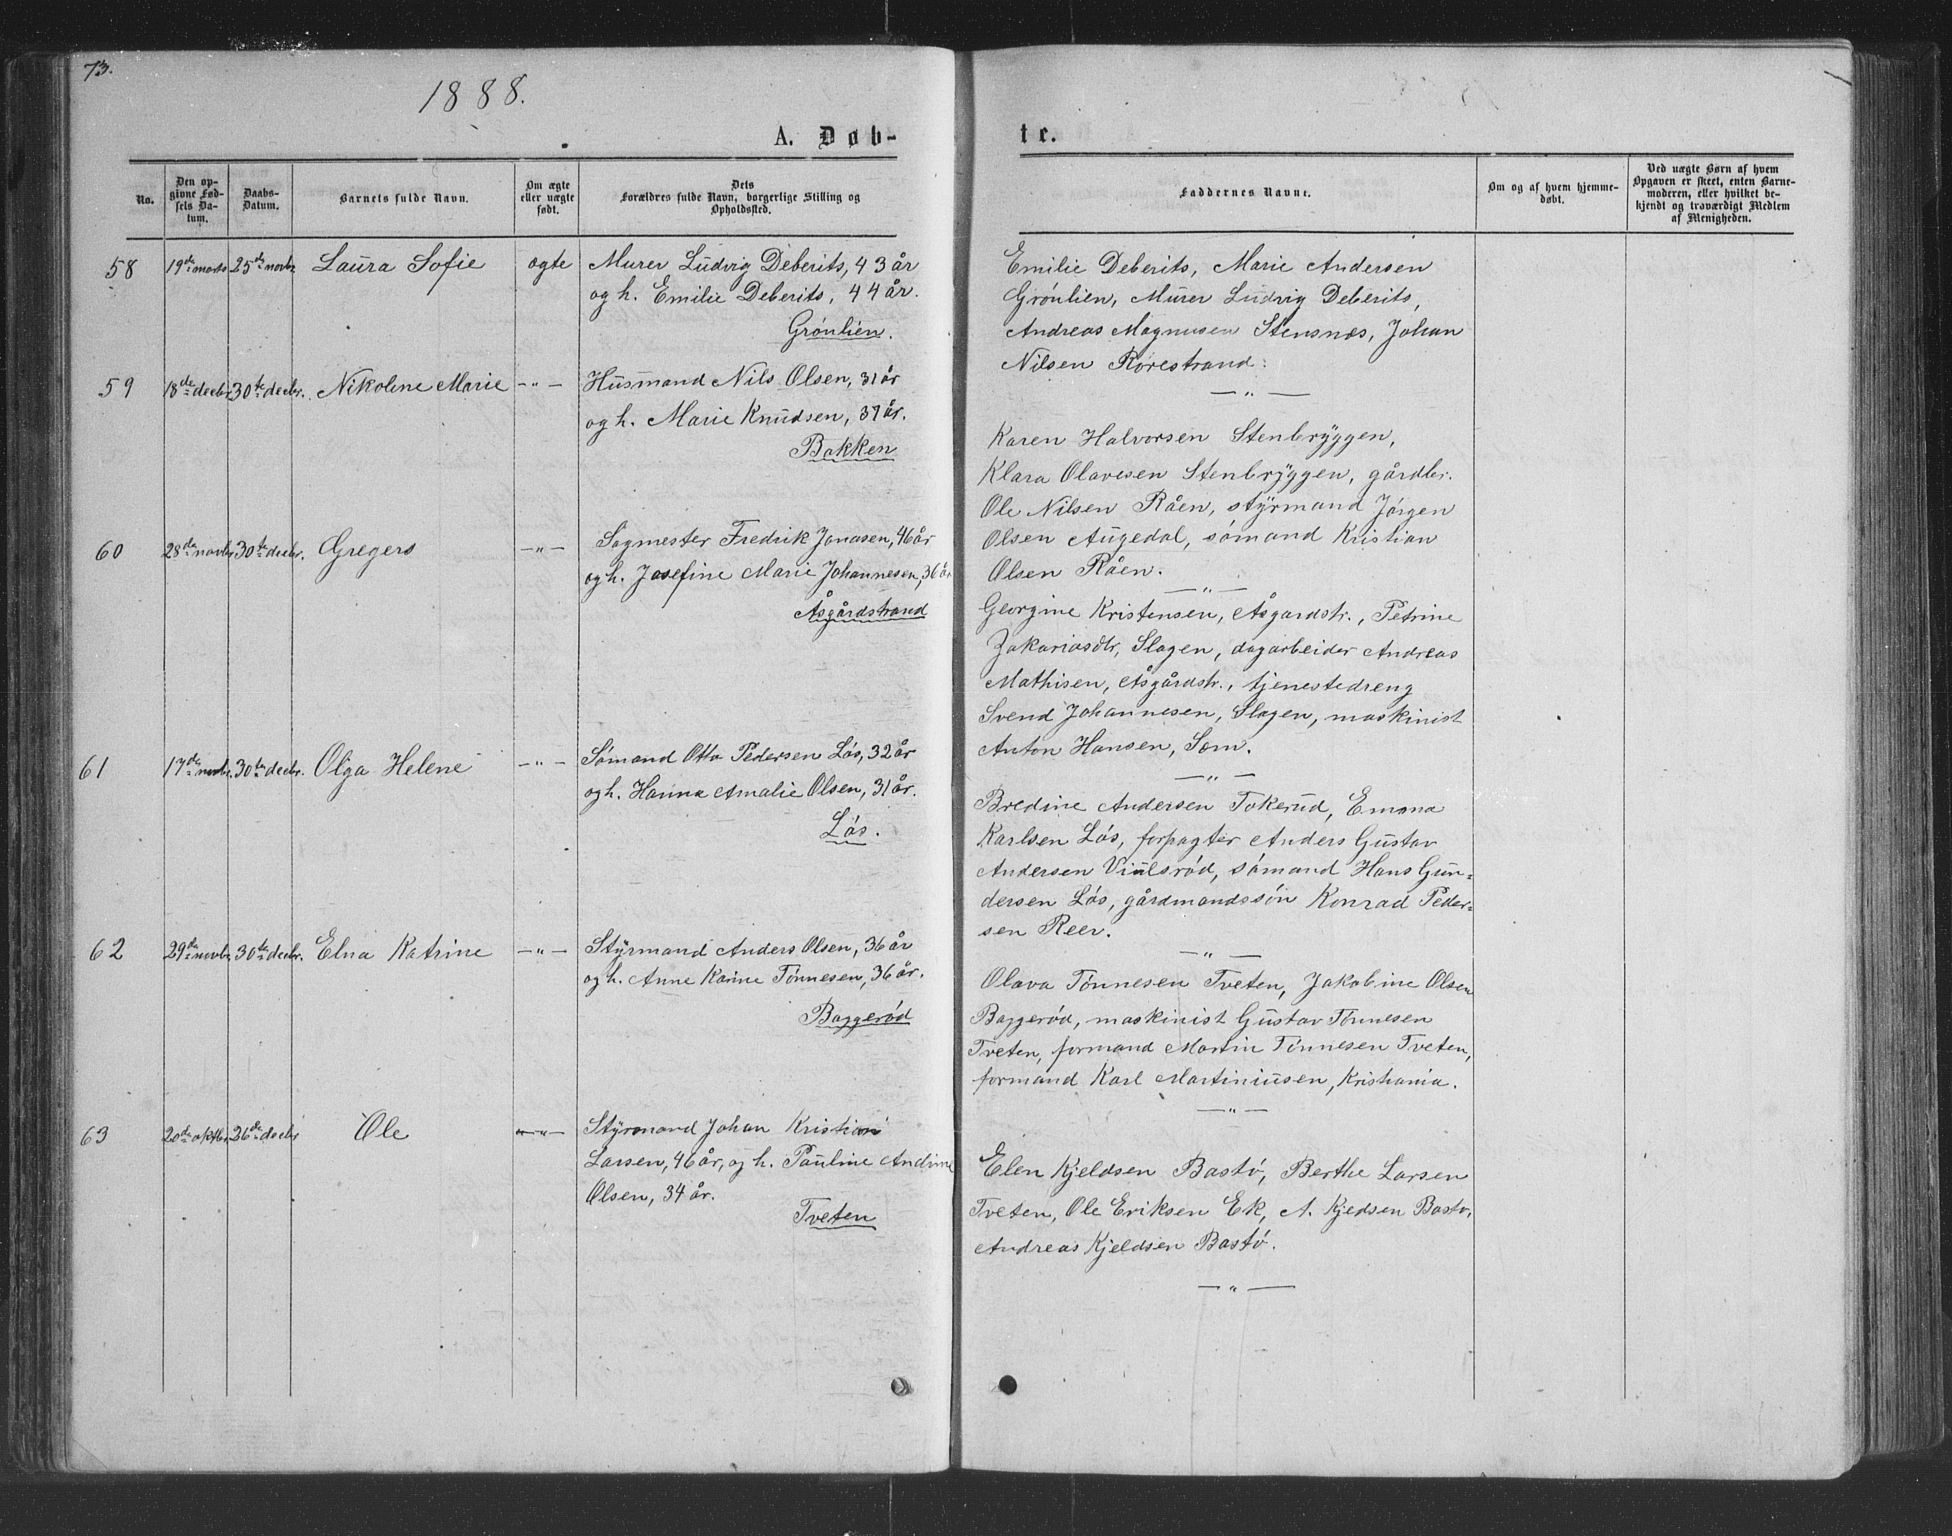 73.
1888.
A. Døb-
No.
Den op-
givne Fød-
sels Da-
tum.
Daabs-
Datum.
Barnets fulde Navn.
Om ægte
eller uægte
født.
Dets
Forældres fulde Navn, borgerlige Stilling og
Opholdssted.
58 19de marts 25de novbr. Laura Sofie ægte Murer Ludvig Deberits, 43 år
og h. Emilie Deberits, 44 år.
Grönlien.
59 18de decbr. 30te decbr. Nikoline Marie —"— Husmand Nils Olsen, 31 år
og h. Marie Knudsen, 37 år.
Bakken
60 28de novbr. 30te decbr. Gregers —"— Sagmester Fredrik Jonasen, 46 år
og h. Josefine Marie Johannesen, 36 år
Åsgårdstrand
61 17de novbr. 30te decbr. Olga Helene —"— Sömand Otto Pedersen Lös, 32 år
og h. Hanna Amalie Olsen, 31 år.
Lös.
62 29de novbr. 30te decbr. Elna Katrine —"— Styrmand Anders Olsen, 36 år
og h. Anne Karine Tönnesen, 36 år.
Baggeröd
63 20de oktbr. 26de decbr. Ole —"— Styrmand Johan Kristian
Larsen, 46 år, og h. Pauline Andrine
Olsen, 34 år.
Tveten
te.
Faddernes Navne.
Om og af hvem hjemme-
døbt.
Ved uægte Børn af hvem
Opgaven er skeet, enten Barne-
moderen, eller hvilket be-
kjendt og troværdigt Medlem
af Menigheden.
Emilie Deberits, Marie Andersen
Grönlien, Murer Ludvig Deberits,
Andreas Magnusen Stensnæs, Johan
Nilsen Rörestrand.
—"—
Karen Halvorsen Stenbryggen,
Klara Olavesen Stenbryggen, gårdbr.
Ole Nilsen Råen, styrmand Jörgen
Olsen Augedal, sömand Kristian
Olsen Råen.
—"—
Georgine Kristensen, Åsgardstr., Petrine
Zakariasdtr, Slagen, dagarbeider Andreas
Mathisen, Åsgårdstr., tjenestedreng
Svend Johannesen, Slagen, maskinist
Anton Hansen, Sem.
—"—
Bredine Andersen Tokerud, Emma
Karlsen Lös, forpagter Anders Gustav
Andersen Viulsröd, sömand Hans Gun=
dersen Lös, gårdmandssön Konrad Peder=
sen Reer.
—"—
Olava Tönnesen Tveten, Jakobine Olsen
Baggeröd, maskinist Gustav Tönnesen
Tveten, formand Martin Tönnesen Tveten,
formand Karl Martiniusen, Kristiania.
—"—
Elen Kjeldsen Bastö, Berthe Larsen
Tveten, Ole Eriksen Ek, A. Kjedsen Bastö,
Andreas Kjeldsen Bastö.
—"—